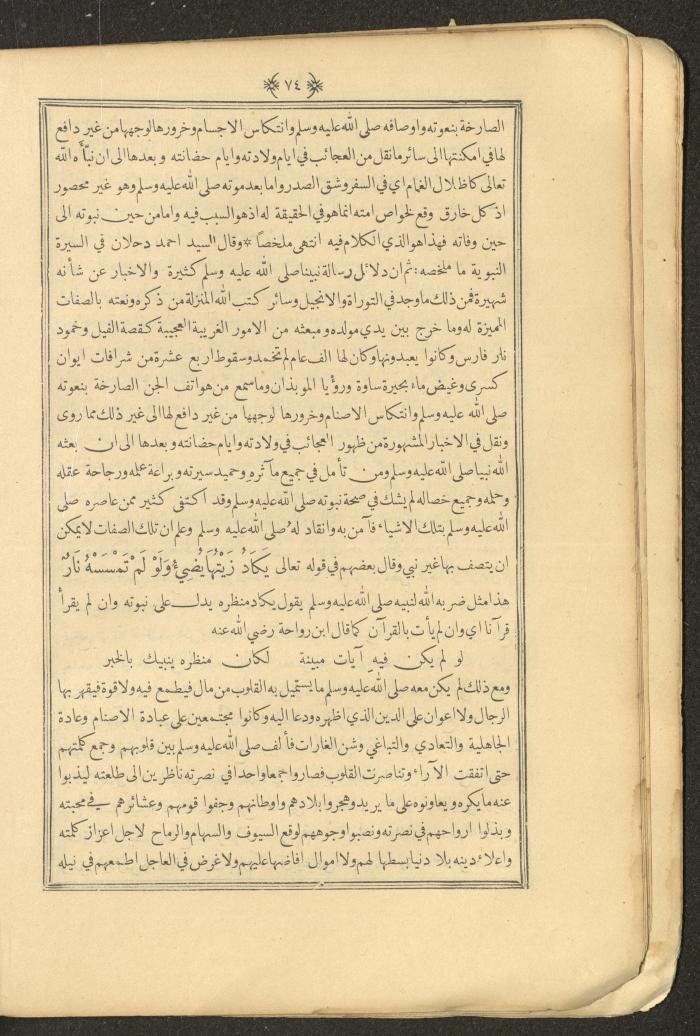 ٧٤
الصارخة بنعوته واوصافه صلى الله عليه وسلم وانتكاس الاجسام وخرورها لوجهها من غير دافع
لها في امكنتها الى سائر ما نقل من العجائب في ايام ولادته وايام حضانته وبعدها الى ان نبّأه الله
تعالى كاظلال الغمام اي في السفر وشق الصدر واما بعد موته صلى الله عليه وسلم وهو غير محصور
اذ كل خارق وقع لخواص امته انما هو في الحقيقة له اذ هو السبب فيه واما من حين نبوته الى
حين وفاته فهذا هو الذي الكلام فيه انتهى ملخصاً * وقال السيد احمد دحلان في السيرة
النبوية ما ملخصه : ثم ان دلائل رسالة نبينا صلى الله عليه وسلم كثيرة والاخبار عن شأنه
شهيرة فمن ذلك ما وجد في التوراة والانجيل وسائر كتب الله المنزلة من ذكره ونعته بالصفات
المميزة له وما خرج بين يدي مولده ومبعثه من الامور الغريبة العجيبة كقصة الفيل وخمود
نار فارس وكانوا يعبدونها وكان لها الف عام لم تخمد وسقوط اربع عشرة من شرافات ايوان
كسرى وغيض ماء بحيرة ساوة ورؤيا الموبذان وما سمع من هواتف الجن الصارخة بنعوته
صلى الله عليه وسلم وانتكاس الاصنام وخرورها لوجهها من غير دافع لها الى غير ذلك مما روى
ونقل في الاخبار المشهورة من ظهور العجائب في ولادته وايام حضانته وبعدها الى ان بعثه
الله نبيا صلى الله عليه وسلم ومن تأمل في جميع مآثره وحميد سيرته وبراعة علمه ورجاحة عقله
وحلمه وجميع خصاله لم يشك في صحة نبوته صلى الله عليه وسلم وقد اكتفى كثير ممن عاصره صلى
الله عليه وسلم بتلك الاشياء فآمن به وانقاد له صلى الله عليه وسلم وعلم ان تلك الصفات لا يمكن
ان يتصف بها غير نبي وقال بعضهم في قوله تعالى يَكَادُ زَيْتُهَا يُضِيءُ وَلَوْ لَمْ تَمْسَسْهُ نَارٌ
هذا مثل ضربه الله لنبيه صلى الله عليه وسلم يقول يكاد منظره يدل على نبوته وان لم يقرأ
قرآنا اي وان لم يأت بالقرآن كما قال ابن رواحة رضي الله عنه
لو لم يكن فيه آيات مبينة لكان منظره ينبيك بالخبر
ومع ذلك لم يكن معه صلى الله عليه وسلم ما يستميل به القلوب من مال فيطمع فيه ولا قوة فيقهر بها
الرجال ولا اعوان على الدين الذي اظهره ودعا اليه وكانوا مجتمعين على عبادة الاصنام وعادة
الجاهلية والتعادي والتباغي وشن الغارات فألف صلى الله عليه وسلم بين قلوبهم وجمع كلمتهم
حتى اتفقت الآراء وتناصرت القلوب فصاروا جمعا واحدا في نصرته ناظرين الى طلعته ليذبوا
عنه ما يكره ويعاونوه على ما يريد وهجروا بلادهم واوطانهم وجفوا قومهم وعشائرهم في محبته
وبذلوا ارواحهم في نصرته ونصبوا وجوههم لوقع السيوف والسهام والرماح لاجل اعزاز كلمته
واعلاء دينه بلا دنيا بسطها لهم ولا اموال افاضها عليهم ولا غرض في العاجل اطمعهم في نيله